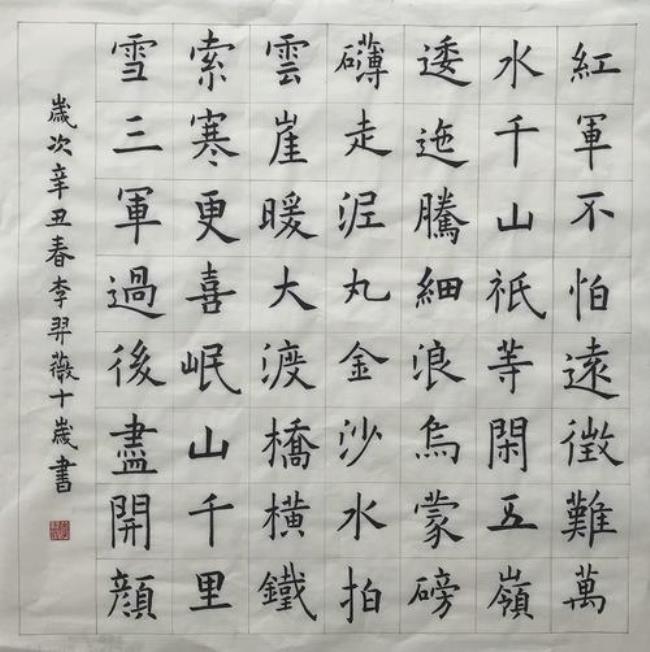 紅軍不怕遠徵難萬
水千山祇等閑五嶺
逶迤騰細浪烏蒙磅
礴走泥丸金沙水拍
雲崖暖大渡橋橫鐵
索寒更喜岷山千里
雪三軍過後盡開顔
歲次辛丑春李羿薇十歲書